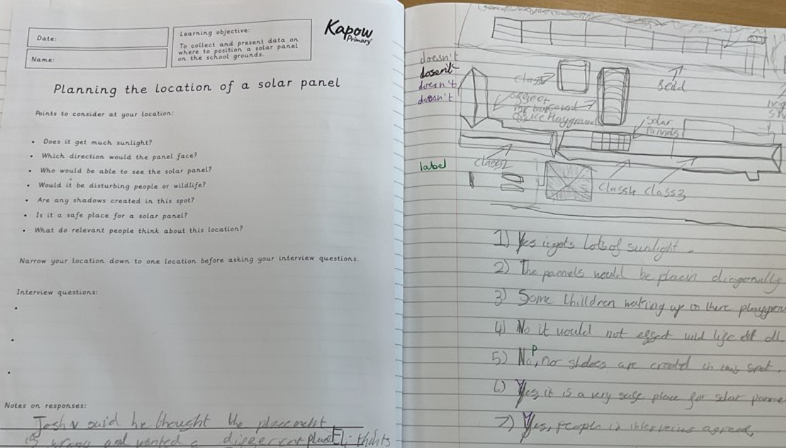 Date:
Name:
Learning objective:
To collect and present data on
where to position a solar panel
on the school grounds.
Kapow
Primary
Planning the location of a solar panel
Points to consider at your location:
• Does it get much sunlight?
• Which direction would the panel face?
• Who would be able to see the solar panel?
• Would it be disturbing people or wildlife?
• Are any shadows created in this spot?
• Is it a safe place for a solar panel?
• What do relevant people think about this location?
Narrow your location down to one location before asking your interview questions.
Interview questions:
Notes on responses:
Josh said he thought the placement
is wrong and wanted a
doesn't
dosen't
doesn't
doesn't
label
Class
Solar
Pannels
Class2
Class4 Class3
1) Yes it gets Lots of sunlight.
2) The pannels would be diagonally
3) Some Children up in there
4) No it would not effect wild life at all
5) No, no are created in this spot.
6) Yes, it is a very safe place for solar
7) Yes, people in interveiws agreed,